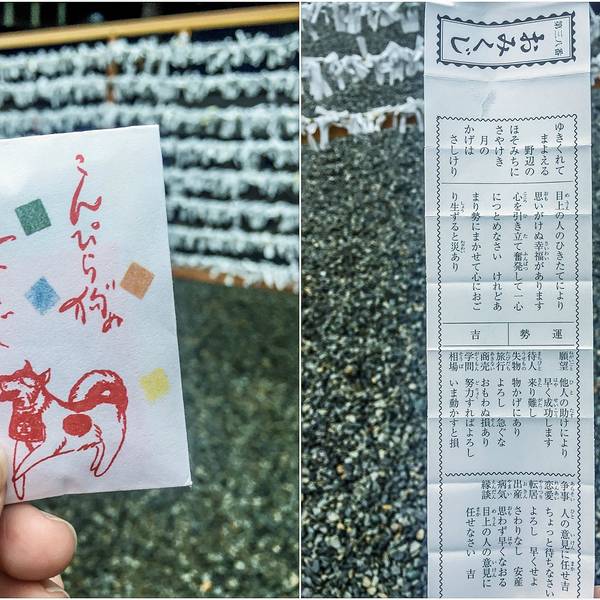 こんぴら狗の
第三八番
おみくじ
ゆきくれて
まよえる
野辺の
ほそみちに
さやけき
月の
かげは
さしけり
目上の人のひきたてにより
思いがけぬ幸福があります
心を引き立て奮発して一心
につとめなさい けれどあ
まり勢にまかせて心におご
り生ずると災あり
運勢 吉
願望 他人の助けにより
早く成功します
待人 来り難し
失物 物かげにあり
旅行 よろし 急ぐな
商売 おもわぬ損あり
学問 努力すればよろし
相場 いま動かすと損
争事 人の意見に任せ吉
恋愛 ちょっと待ちなさい
転居 よろし 早くせよ
出産 さわりなし 安産
病気 思わず早くなおる
縁談 目上の人の意見に
任せなさい 吉